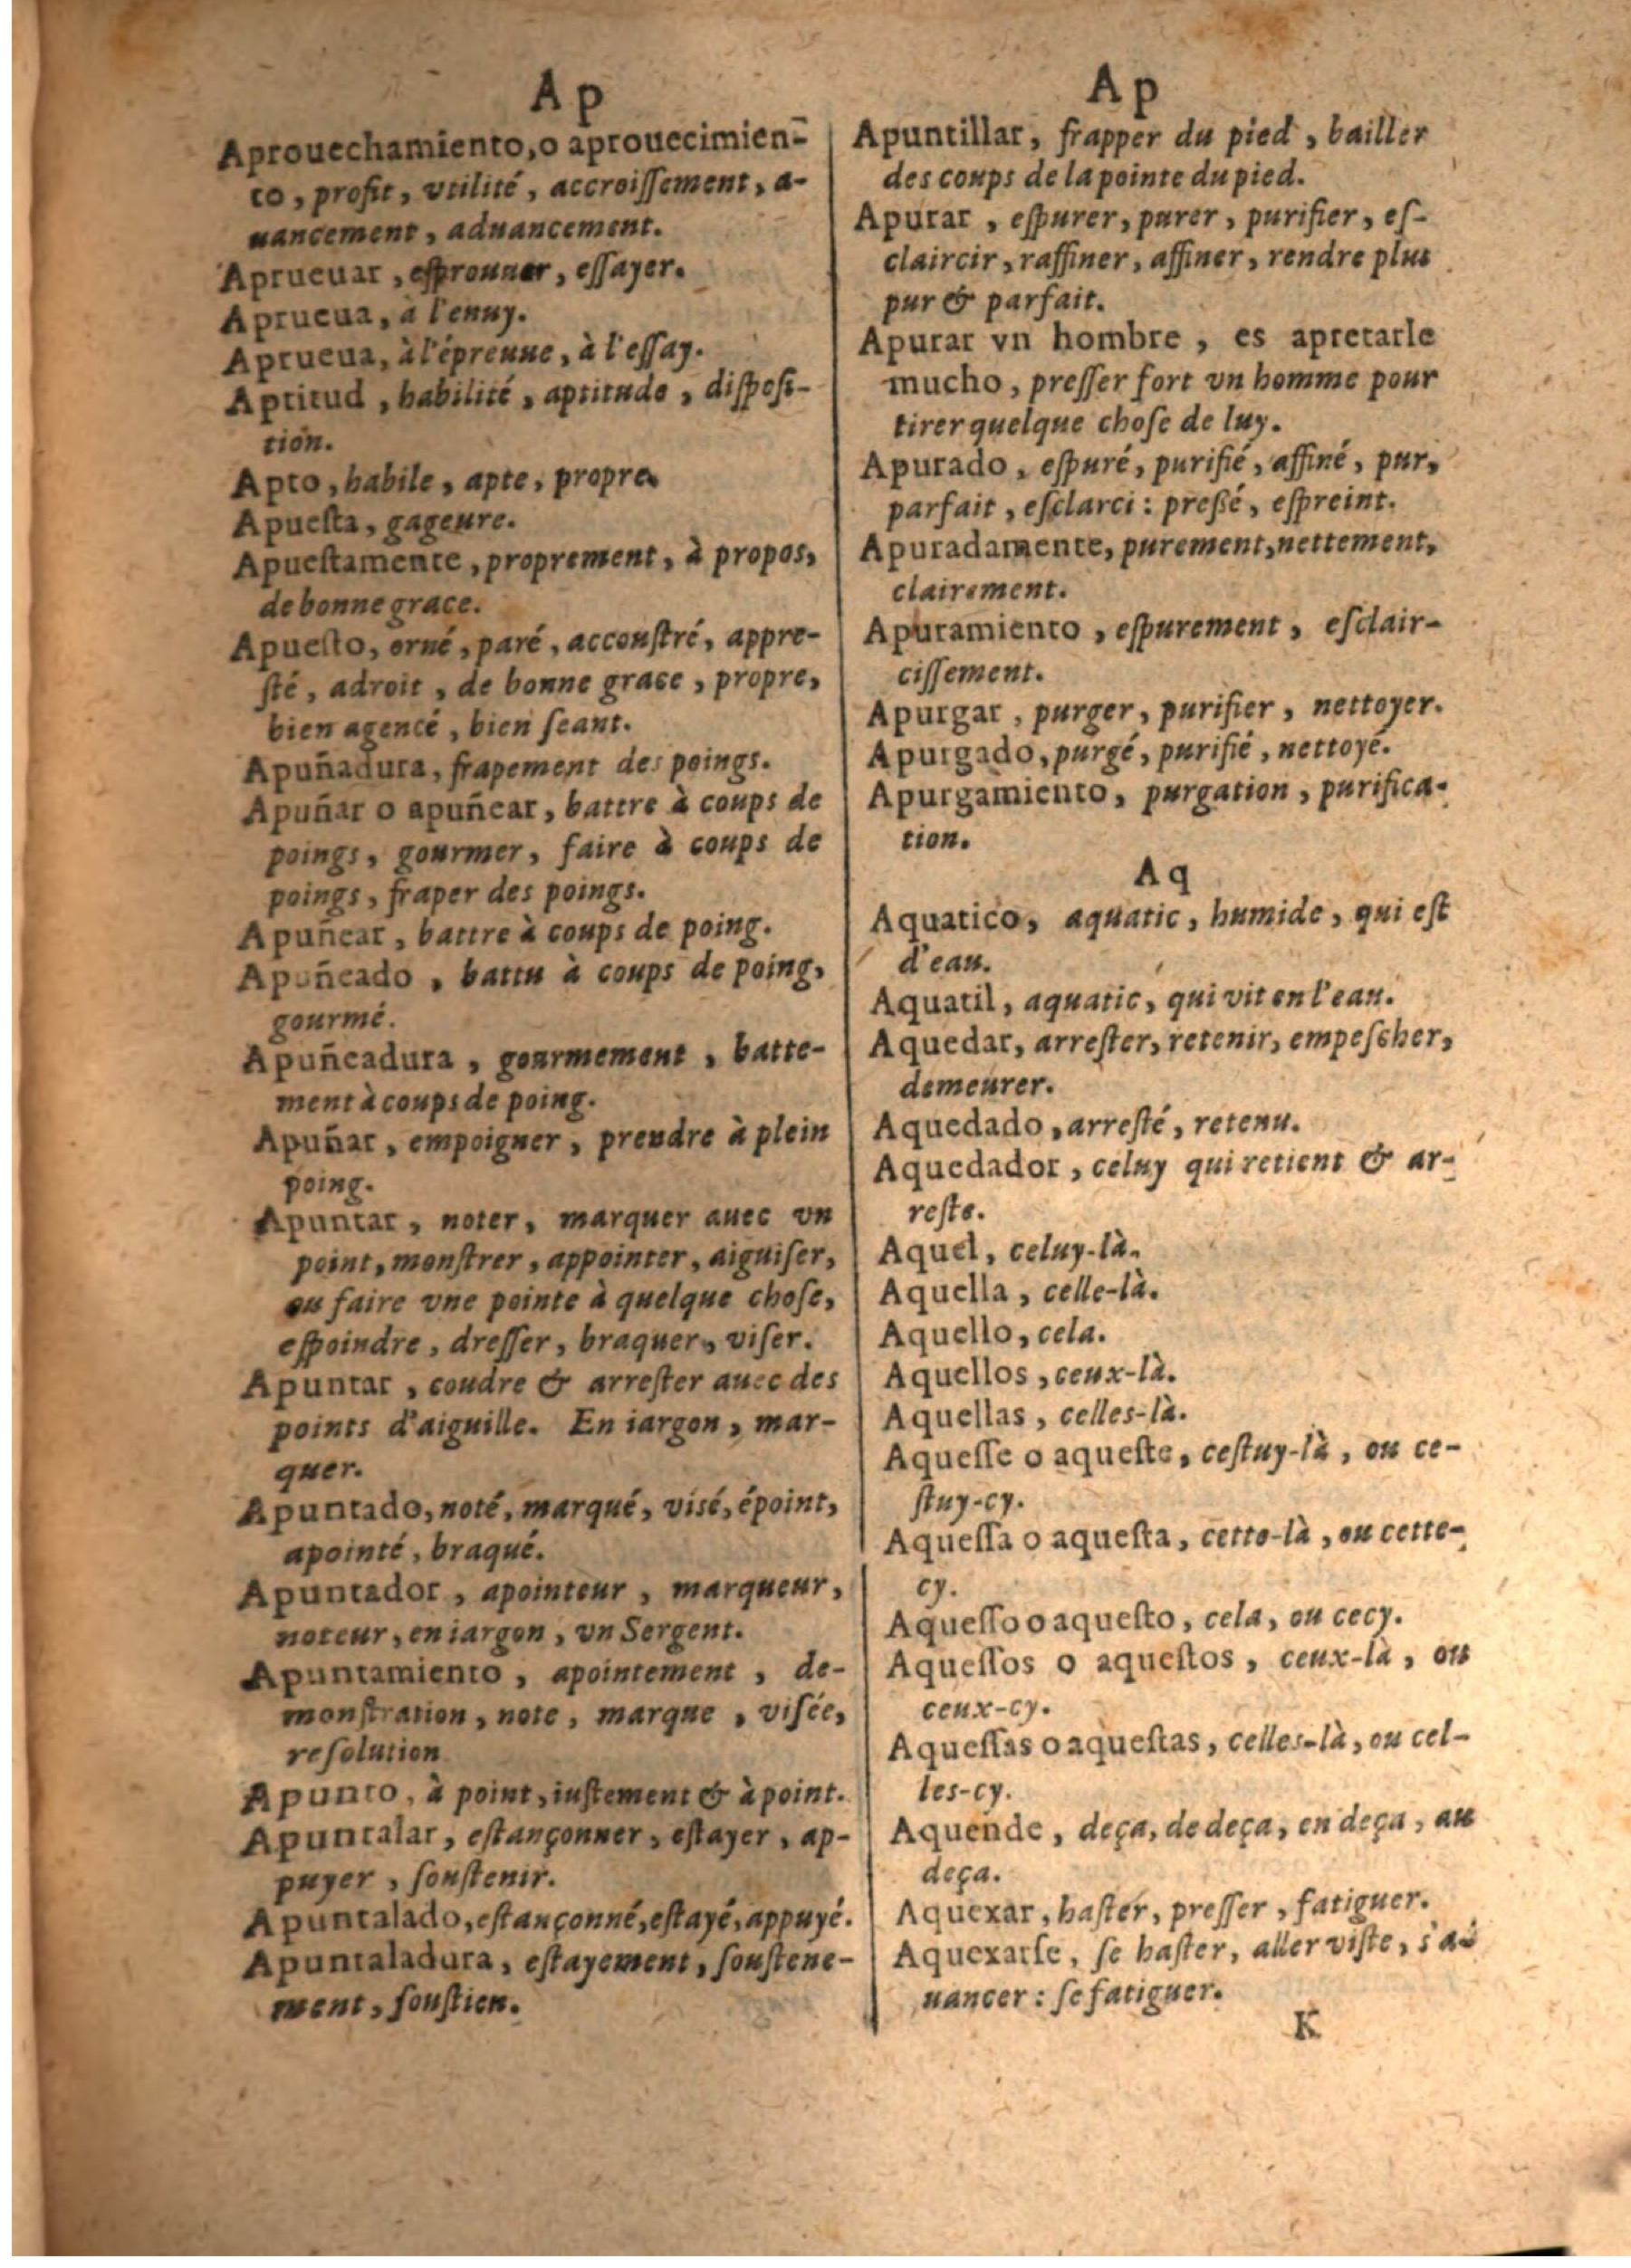 Ap
Aprouechamiento, o aprouecimien-
to, profit, vtilité, accroiſſement, a-
uancement, aduancement.
Aprueuar, eſprouuer, eſſayer.
Aprueua, à l'enuy.
Aprueua, à l'épreuue, à l'eſſay.
Aptitud, habilité, aptitude, diſpoſi-
tion.
Apto, habile, apte, propre.
Apueſta, gageure.
Apueſtamente, proprement, à propos,
de bonne grace.
Apueſto, orné, paré, accouſtré, appre-
ſté, adroit, de bonne grace, propre,
bien agencé, bien ſeant.
Apuñadura, frapement des poings.
Apuñar o apuñear, battre à coups de
poings, gourmer, faire à coups de
poings, fraper des poings.
Apuñear, battre à coups de poing.
Apuñeado, battu à coups de poing,
gourmé.
Apuñeadura, gourmement, batte-
ment à coups de poing.
Apuñar, empoigner, prendre à plein
poing.
Apuntar, noter, marquer auec vn
point, monſtrer, appointer, aiguiſer,
ou faire vne pointe à quelque choſe,
eſpoindre, dreſſer, braquer, viſer.
Apuntar, coudre & arreſter auec des
points d'aiguille. En iargon, mar-
quer.
Apuntado, noté, marqué, visé, époint,
apointé, braqué.
Apuntador, apointeur, marqueur,
noteur, en iargon, vn Sergent.
Apuntamiento, apointement, de-
monſtration, note, marque, viſée,
reſolution
Apunto, à point, iuſtement & à point.
Apuntalar, eſtançonner, eſtayer, ap-
puyer, ſouſtenir.
Apuntalado, eſtançonné, eſtayé, appuyé.
Apuntaladura, eſtayement, ſouſtene-
ment, ſouſtien.
Ap
Apuntillar, frapper du pied, bailler
des coups de la pointe du pied.
Apurar, eſpurer, purer, purifier, eſ-
claircir, raffiner, affiner, rendre plus
pur & parfait.
Apurar vn hombre, es apretarle
mucho, preſſer fort vn homme pour
tirer quelque choſe de luy.
Apurado, eſpuré, purifié, affiné, pur,
parfait, eſclarci: preßé, eſpreint.
Apuradamente, purement, nettement,
clairement.
Apuramiento, eſpurement, eſclair-
ciſſement.
Apurgar, purger, purifier, nettoyer.
Apurgado, purgé, purifié, nettoyé.
Apurgamiento, purgation, purifica-
tion.
Aq
Aquatico, aquatic, humide, qui eſt
d'eau.
Aquatil, aquatic, qui vit en l'eau.
Aquedar, arreſter, retenir, empeſcher,
demeurer.
Aquedado, arreſté, retenu.
Aquedador, celuy qui retient & ar-
reſte.
Aquel, celuy-là.
Aquella, celle-là.
Aquello, cela.
Aquellos, ceux-là.
Aquellas, celles-là.
Aqueſſe o aqueſte, ceſtuy-là, ou ce-
ſtuy-cy.
Aqueſſa o aqueſta, cette-là, ou cette-
cy.
Aqueſſo o aqueſto, cela, ou cecy.
Aqueſſos o aqueſtos, ceux-là, ou
ceux-cy.
Aqueſſas o aqueſtas, celles-là, ou cel-
les-cy.
Aquende, deça, de deça, en deça, au
deça.
Aquexar, haſter, preſſer, fatiguer.
Aquexarſe, ſe haſter, aller viſte, s'a-
uancer: ſe fatiguer.
K